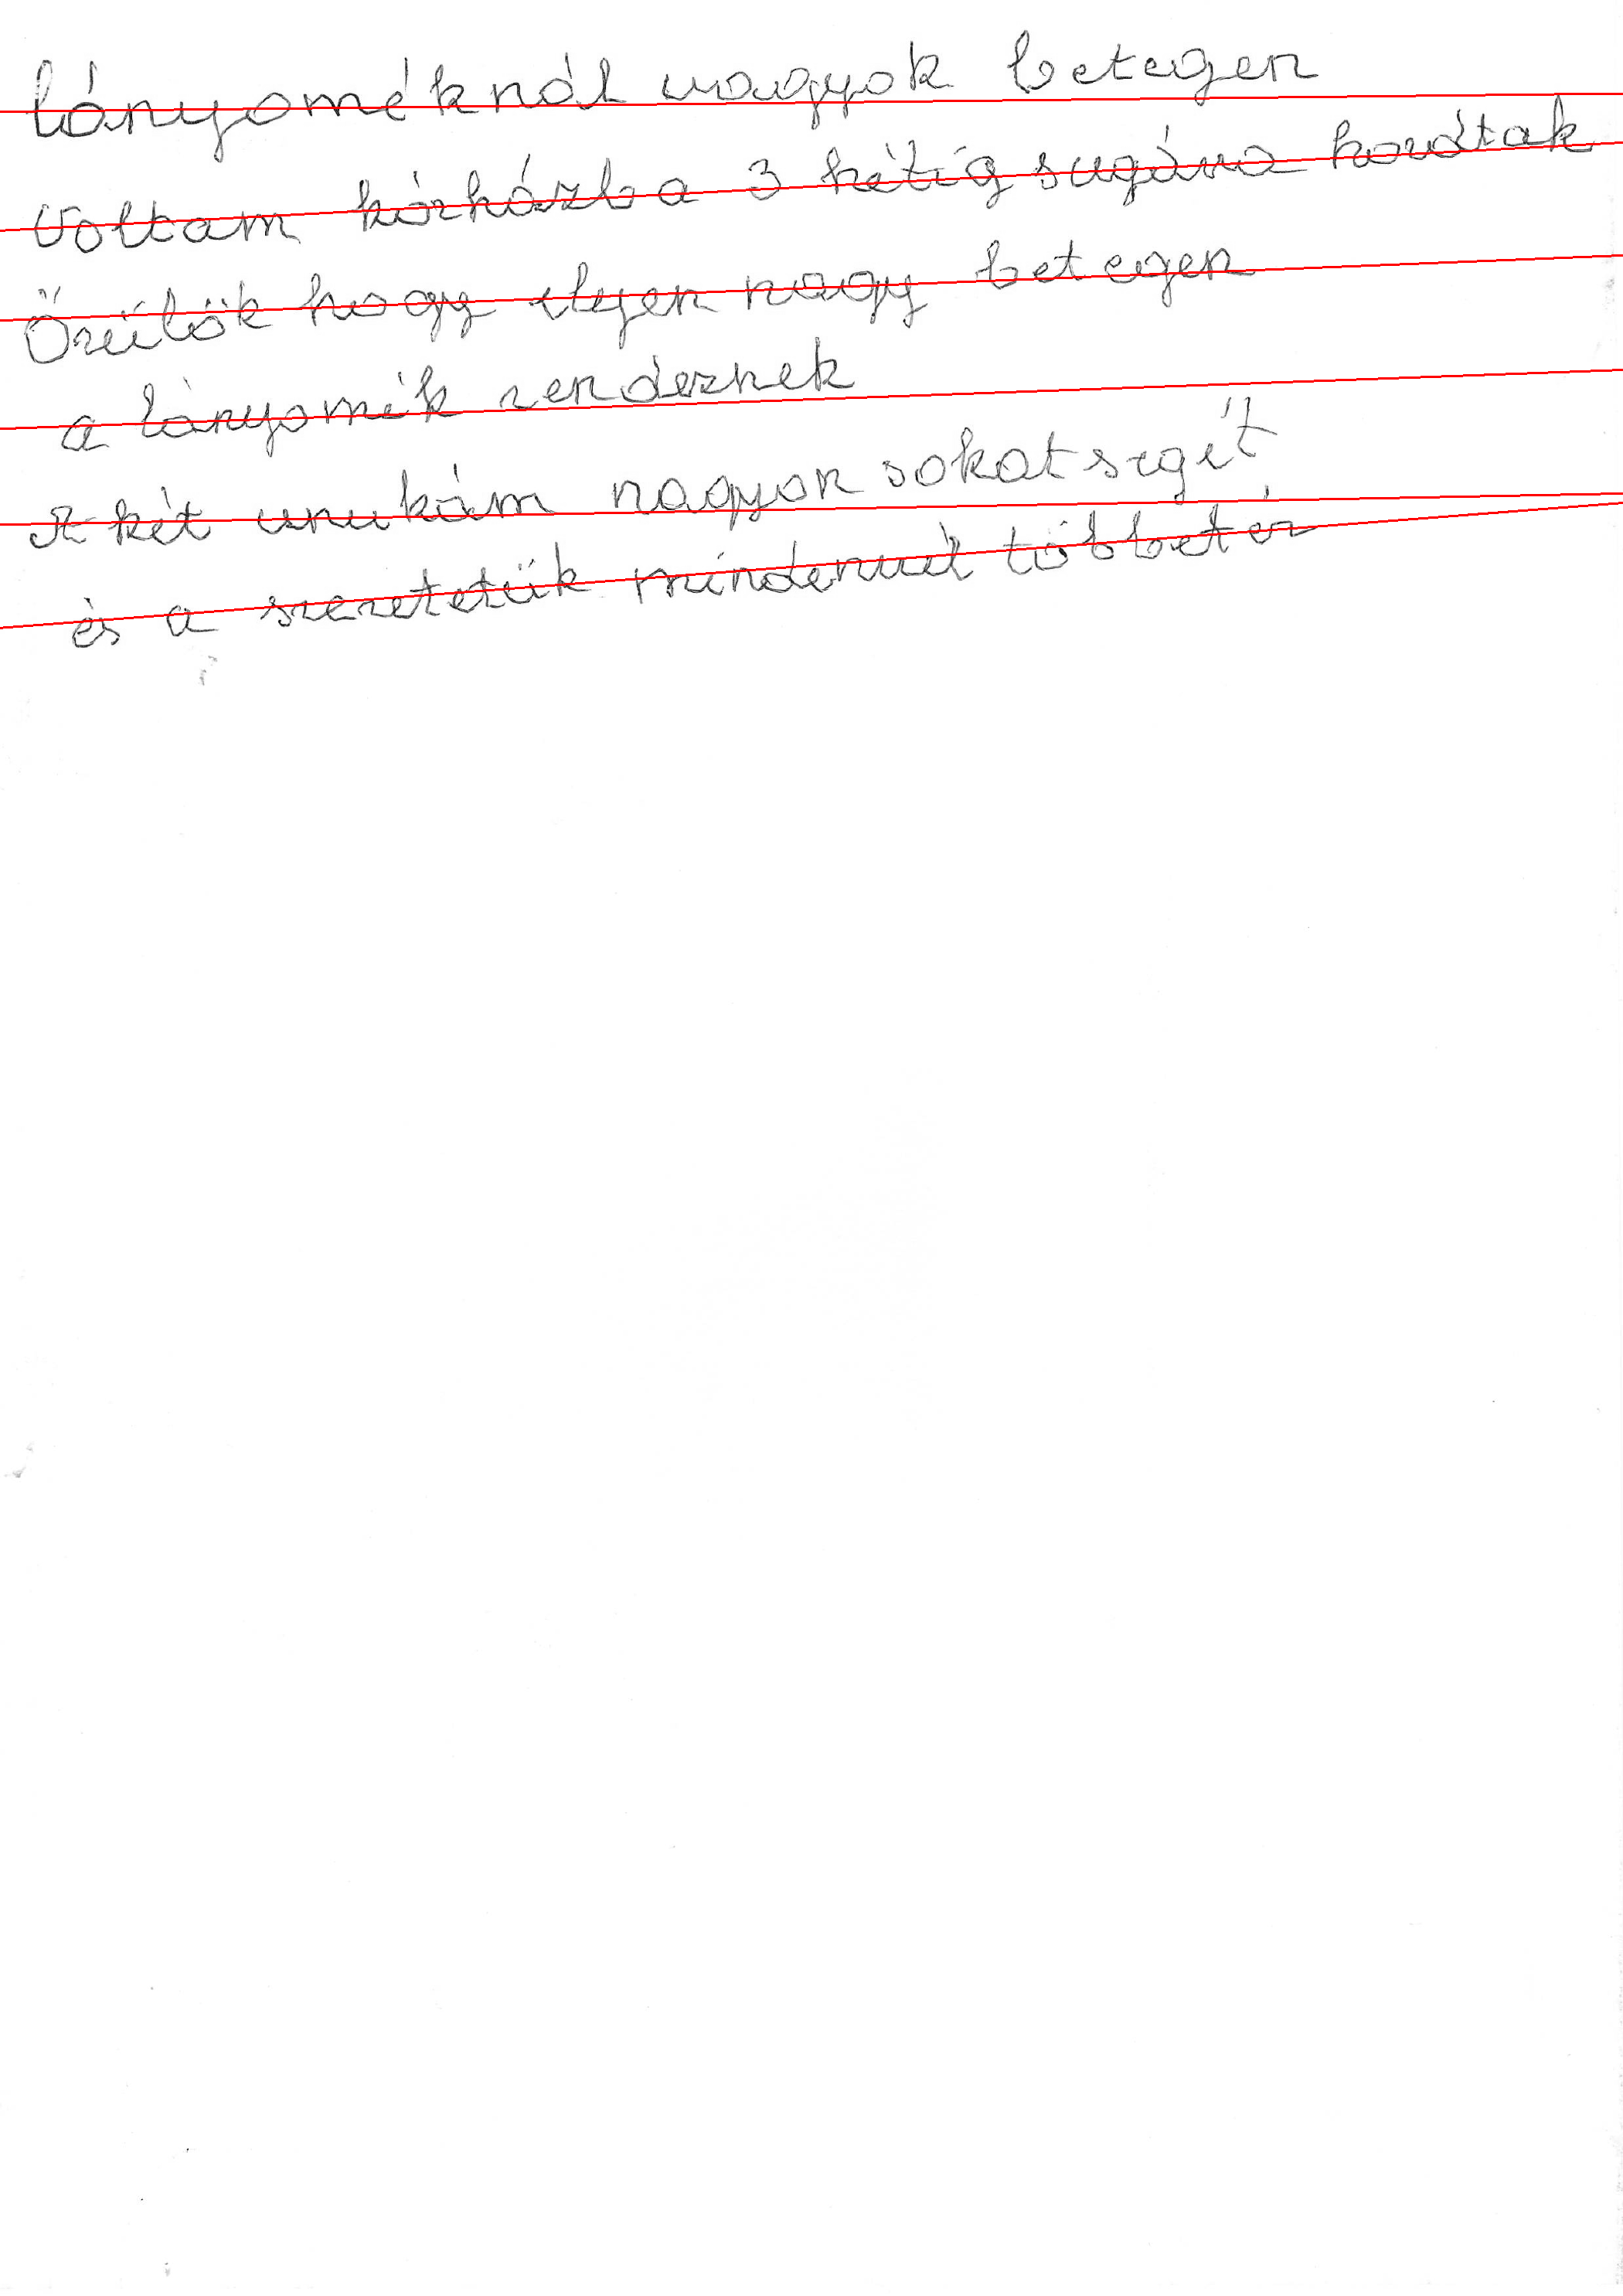 lányoméknál vagyok betegen
Voltam kórházba 3 hétig sugárra hordtak
Őrülök hogy ilyen nagy betegen
a lányomék rendeznek
A két unukám nagyon sokat segít
és a szeretetük mindennél többet ér